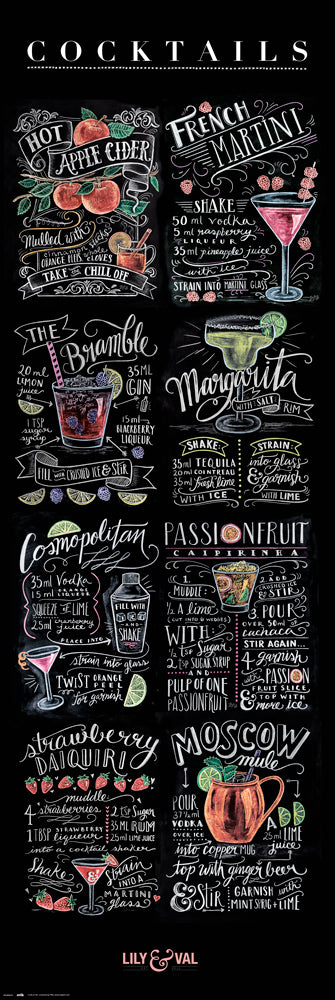 COCKTAILS
HOT
APPLE CIDER
Mulled with
cinnamon sticks
ORANGE PIPS CLOVES
TAKE THE CHILL OFF
FRENCH
MARTINI
SHAKE
50 ml vodka
5 ml raspberry
LIQUEUR
35 ml pineapple juice
with ice
STRAIN INTO MARTINI GLASS
THE
Bramble
20 ml
LEMON
juice
35ML
GIN
1 TSP
sugar
syrup
15 ml
BLACKBERRY
LIQUEUR
FILL with CRUSHED ICE & STIR
Margarita
WITH SALT RIM
SHAKE:
35ml TEQUILA
20ml COINTREAU
35ml fresh lime
WITH ICE
STRAIN:
into glass
& garnish
WITH LIME
Cosmopolitan
35ml Vodka
15 ml ORANGE
LIQUEUR
SQUEEZE OF LIME
25ml cranberry
juice
PLACE INTO
FILL WITH
ICE
AND
SHAKE
strain into glass
TWIST ORANGE
PEEL
for garnish
PASSIONFRUIT
CAIPIRINHA
1.
MUDDLE:
1/2 A lime
(CUT INTO 8 WEDGES)
WITH
2 TSP Sugar
2 TSP SUGAR SYRUP
AND
PULP OF ONE
PASSIONFRUIT
2. ADD
CRUSHED ICE
& STIR
3. POUR
OVER 50ml of
cachaca
STIR AGAIN...
4. garnish
with PASSION
FRUIT SLICE
& TOP WITH
more ice
strawberry
DAIQUIRI
muddle
4 strawberries
1 TBSP STRAWBERRY
liqueur
2 TSP Sugar
35 ML RUM
25ml LIME
juice
into a cocktail shaker
Shake
& Strain
INTO A
MARTINI
glass
MOSCOW
mule
POUR
37 1/2 ml
VODKA
OVER ICE
& ADD
25 ml LIME
juice
into copper MUG
top with ginger beer
& Stir
GARNISH with
MINT SPRIG + LIME
LILY & VAL